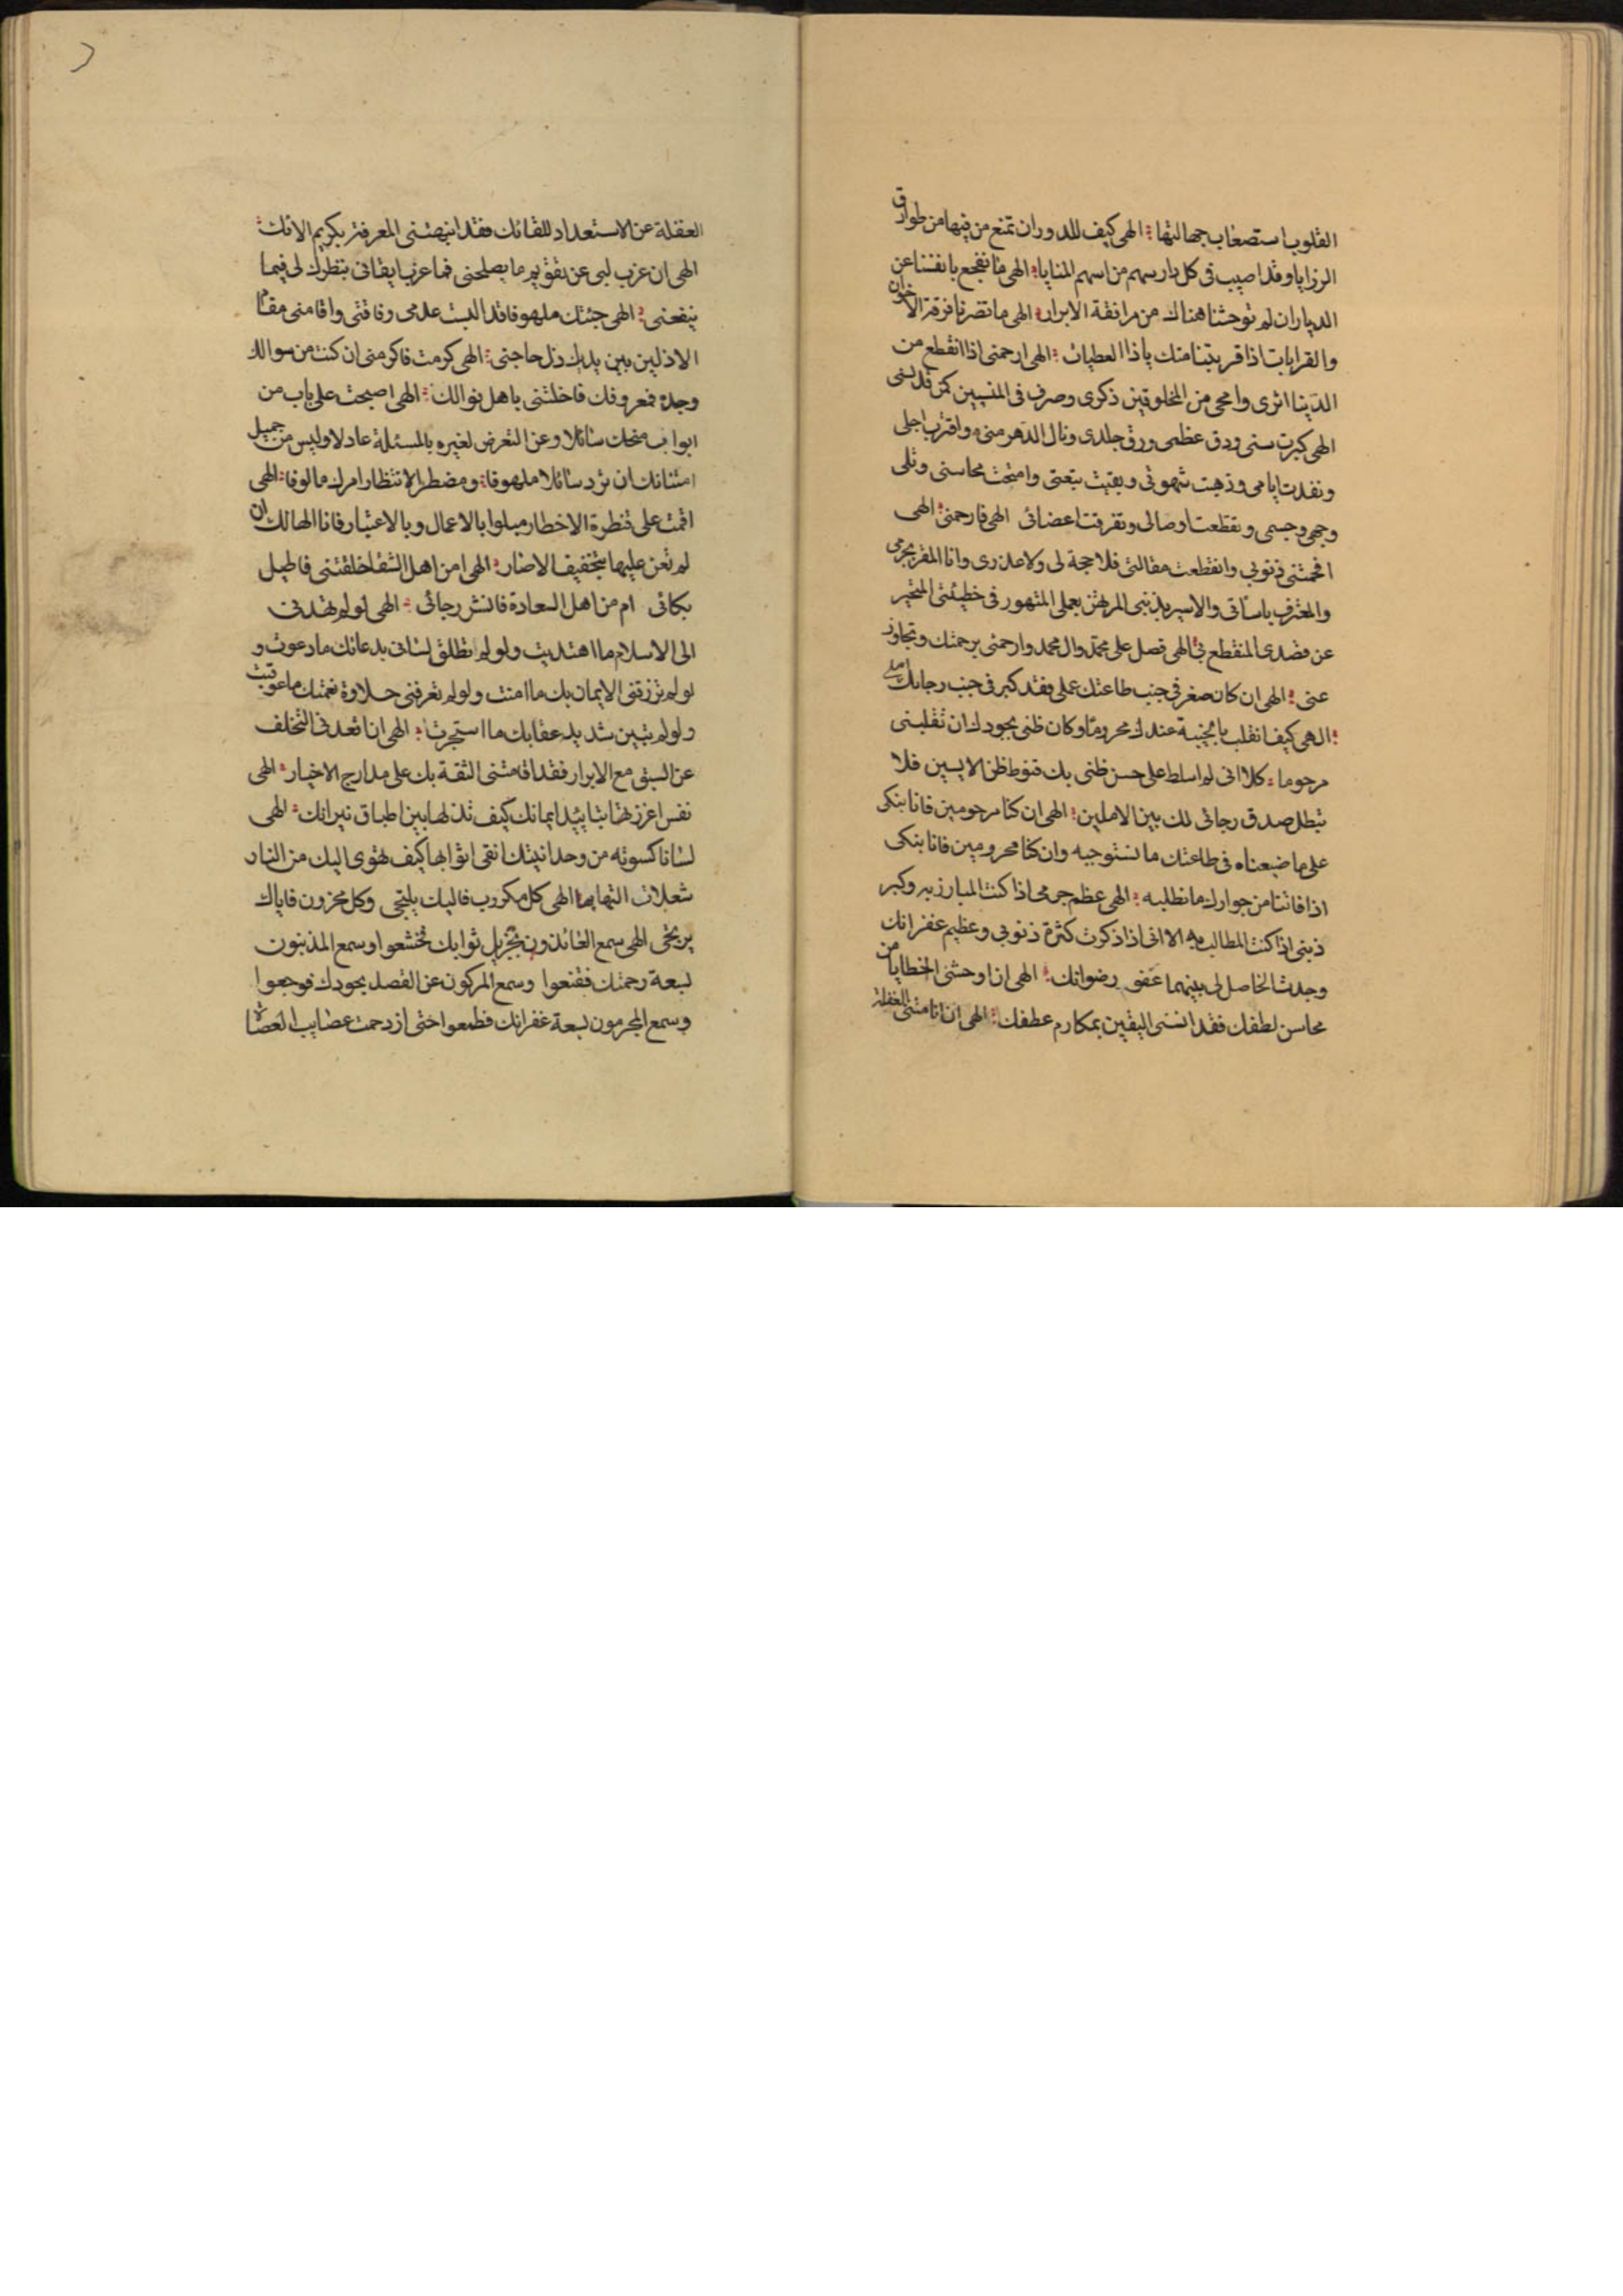 القلوب استصعاب جهالتها الهى كيف للدور ان تمنع من فيها من طوارق
الرزايا وقد اصيب فى كل دار سهم من اسهم المنايا الهى ما نتفجع بانفسنا عن
الديار ان لم توحشنا هناك من مرافقة الابرار الهى ما تضرنا فرقة الاخوان
والقرابات اذا قربتنا منك ياذا العطيات الهى ارحمنى اذا انقطع من
الدنيا اثرى وامحى من المخلوقين ذكرى وصرت فى المنسيين كمن قد نسى
الهى كبرت سنى ودق عظمى ورق جلدى ونال الدهر منى واقترب اجلى
ونفدت ايامى وذهبت شهوتى وبقيت تبعتى وامتحت محاسنى وبلى
وجهى وجسمى وتقطعت اوصالى وتفرقت اعضائى الهى فارحمنى الهى
افحمتنى ذنوبى وانقطعت مقالتى فلا حجة لى ولا عذرى وانا المقر بجرمى
والمعترف باساتى والاسير بذنبى المرتهن بعملى المتهور فى خطيئتى المتحير
عن قصدى المنقطع بى الهى فصل على محمد وال محمد وارحمنى برحمتك وتجاوز
عنى الهى ان كان صغر فى جنب طاعتك عملى فقد كبر فى جنب رجائك املى
الهى كيف انقلب بالخيبة عندك محروما وكان ظنى بجودك ان تقلبنى
مرحوما كلا انى لم اسلط على حسن ظنى بك قنوط ظن الايسين فلا
تبطل صدق رجائى لك بين الاملين الهى ان كنا مرحومين فانا نبكى
على ما ضيعناه فى طاعتك ما نستوجبه وان كنا محرومين فانا نبكى
اذا فاتنا من جوارك ما نطلبه الهى عظم جرمى اذا كنت المبارز به وكبر
ذنبى اذا كنت المطالب به الا انى اذا ذكرت كثرة ذنوبى وعظيم غفرانك
وجدت الحاصل لى بينهما عفو رضوانك الهى ان اوحشنى الخطايا من
محاسن لطفك فقد انسنى اليقين بمكارم عطفك الهى ان انامتنى الغفلة
الغفلة عن الاستعداد للقائك فقد انبهتنى المعرفة بكريم الائك
الهى ان عزب لبى عن تقويم ما يصلحنى فما عزب ايقانى بنظرك لى فيما
ينفعنى الهى جئتك ملهوفا قد البست عدمى وفاقتى واقامنى مقام
الاذلين بين يديك ذل حاجتى الهى كرمت فاكرمنى ان كنت من سوالك
وجدت بمعروفك فاخلطنى باهل نوالك الهى اصبحت على باب من
ابواب منحك سائلا وعن التعرض لغيره بالمسئلة عادلا وليس من جميل
امتنانك ان ترد سائلا ملهوفا ومضطرا لانتظار امرك مالوفا الهى
اقمت على قنطرة الاخطار مبلوا بالاعمال وبالاعتبار فانا الهالك ان
لم تعن عليها بتخفيف الاصار الهى امن اهل الشقا خلقتنى فاطيل
بكائى ام من اهل السعادة فانشر رجائى الهى لو لم تهدنى
الى الاسلام ما اهتديت ولو لم تطلق لسانى بدعائك ما دعوت و
لو لم ترزقنى الايمان بك ما امنت ولو لم تعرفنى حلاوة نعمتك ما عوقبت
ولو لم تبين شديد عقابك ما استجرت الهى ان اقعدنى التخلف
عن السبق مع الابرار فقد اقامتنى الثقة بك على مدارج الاخيار الهى
نفس اعززتها بتاييد ايمانك كيف تذلها بين اطباق نيرانك الهى
لسانا كسوته من وحدانيتك انقى اثوابها كيف تهوى اليك من النار
شعلات التهابها الهى كل مكروب فاليك يلتجى وكل محزون فاياك
يرتجى الهى سمع العائذون بجزيل ثوابك فخشعوا وسمع المذنبون
بسعة رحمتك فقنعوا وسمع المركون عن القصد بجودك فرجعوا
وسمع المجرمون بسعة غفرانك فطمعوا حتى ازدحمت عصايب العصاة